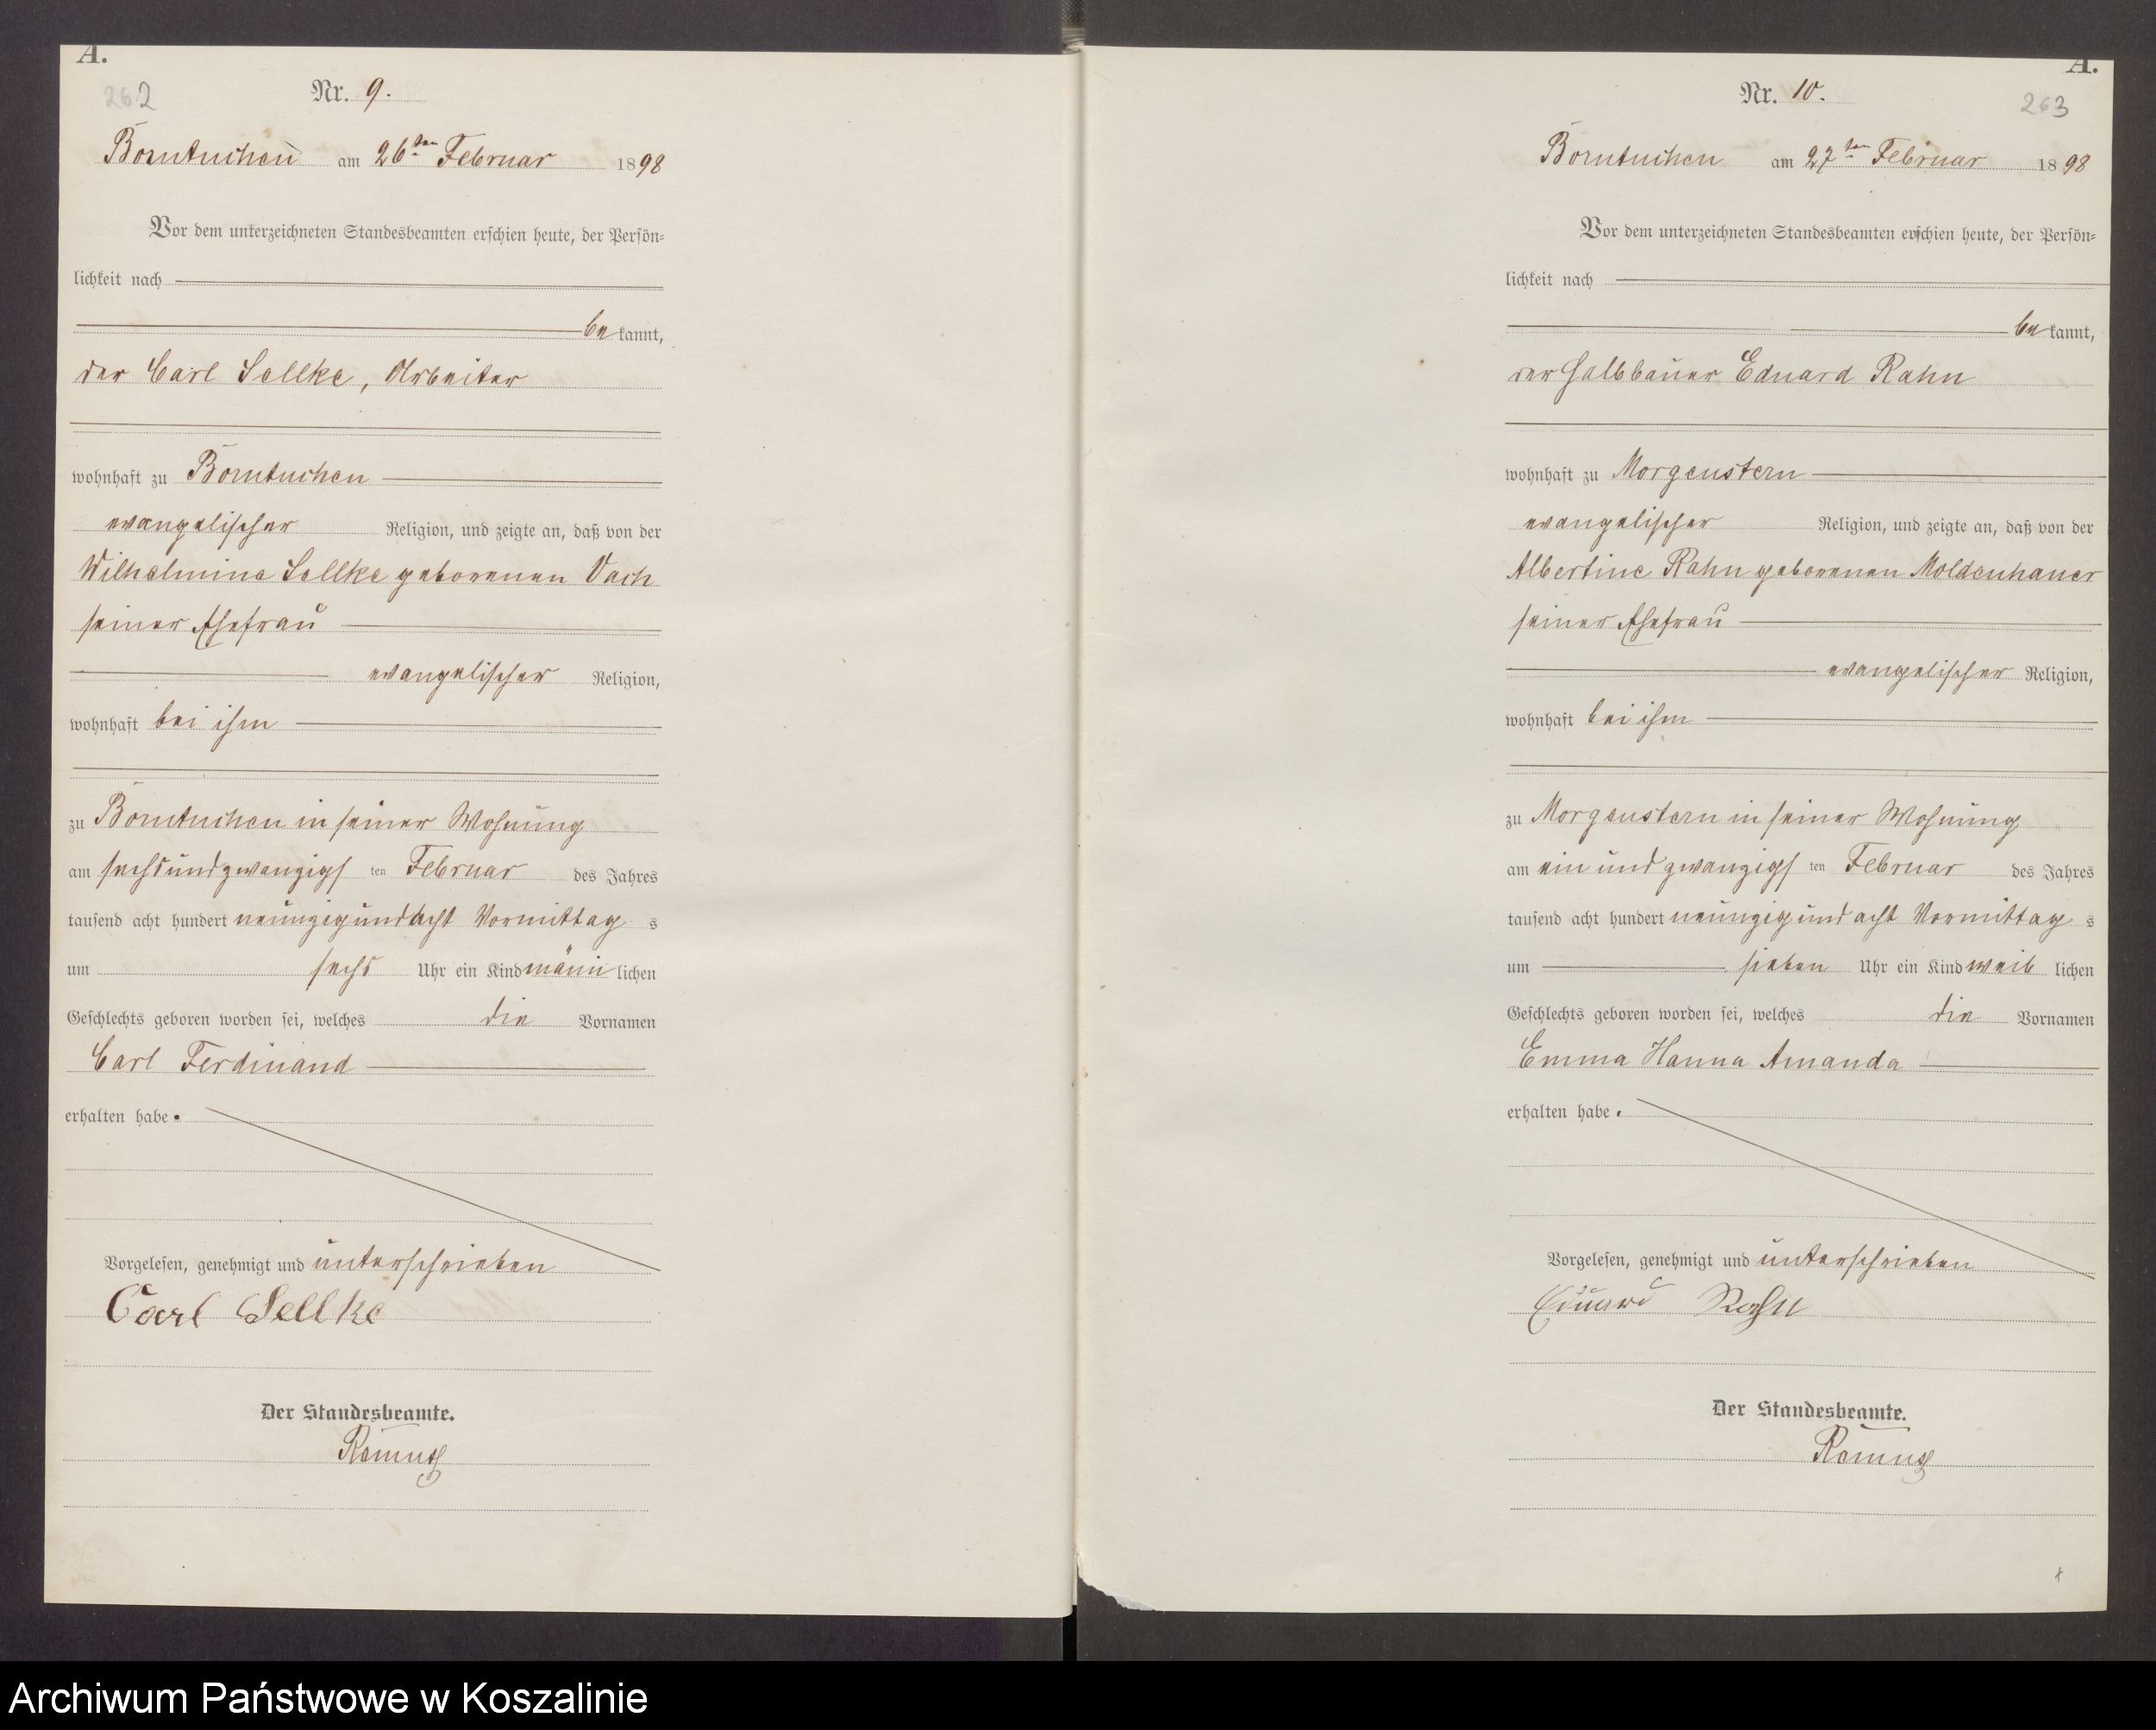 A.
262
Nr. 9.
Borntuchen am 26ten Februar 1898
Vor dem unterzeichneten Standesbeamten erschien heute, der Persön-
lichkeit nach
bekannt,
der Carl Sellke, Arbeiter
wohnhaft zu Borntuchen
evangelischer Religion, und zeigte an, daß von der
Wilhelmine Sellke geborenen Vach
seiner Ehefrau
evangelischer Religion,
wohnhaft bei ihm
zu Borntuchen in seiner Wohnung
am sechsundzwanzigsten Februar des Jahres
tausend acht hundert neunzig und acht Vormittags
um sechs Uhr ein Kind männlichen
Geschlechts geboren worden sei, welches die Vornamen
Carl Ferdinand
erhalten habe.
Vorgelesen, genehmigt und unterschrieben
Carl Sellke
Der Standesbeamte.
Ramus
A.
Nr. 10.
263
Borntuchen am 27ten Februar 1898
Vor dem unterzeichneten Standesbeamten erschien heute, der Persön-
lichkeit nach
bekannt,
der Halbbauer Eduard Rahn
wohnhaft zu Morgenstern
evangelischer Religion, und zeigte an, daß von der
Albertine Rahn geborenen Moldenhauer
seiner Ehefrau
evangelischer Religion,
wohnhaft bei ihm
zu Morgenstern in seiner Wohnung
am ein und zwanzigsten Februar des Jahres
tausend acht hundert neunzig und acht Vormittags
um sieben Uhr ein Kind weiblichen
Geschlechts geboren worden sei, welches die Vornamen
Emma Hanna Amanda
erhalten habe.
Vorgelesen, genehmigt und unterschrieben
Eduard Rahn
Der Standesbeamte.
Ramus
Archiwum Państwowe w Koszalinie